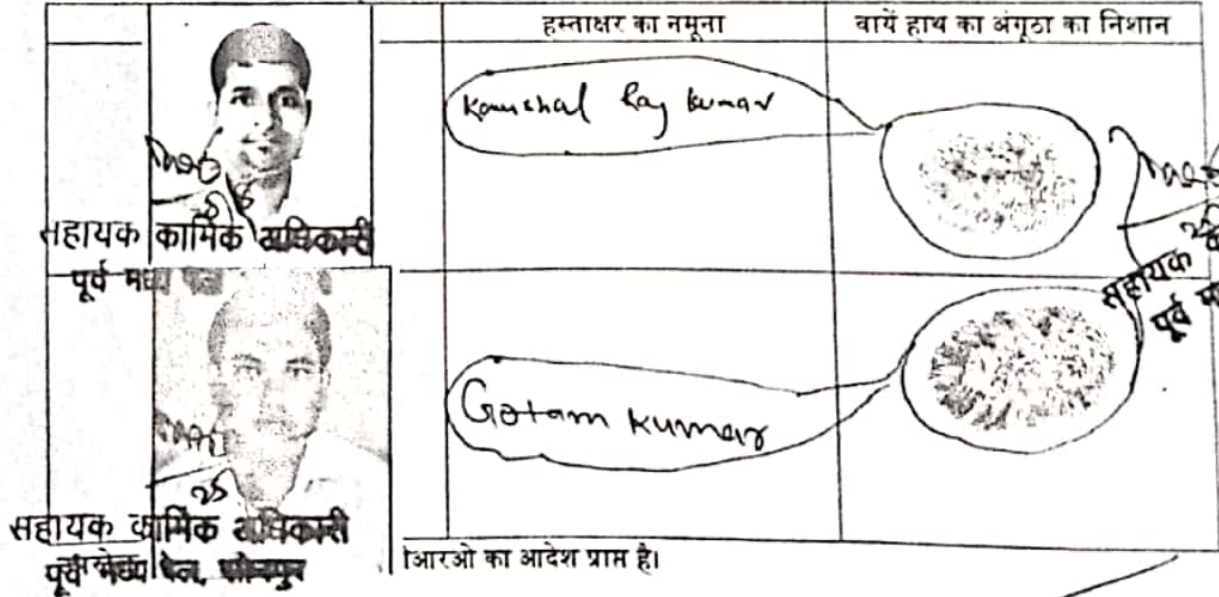 हस्ताक्षर का नमूना
वायें हाथ का अंगूठा का निशान
Kaushal Raj Kumar
सहायक कार्मिक अधिकारी
पूर्व मध्य रेल
सहायक
पूर्व
Gotam Kumar
25
सहायक कार्मिक अधिकारी
पूर्व मध्य रेल, सोनपुर
आरओ का आदेश प्राप्त है।